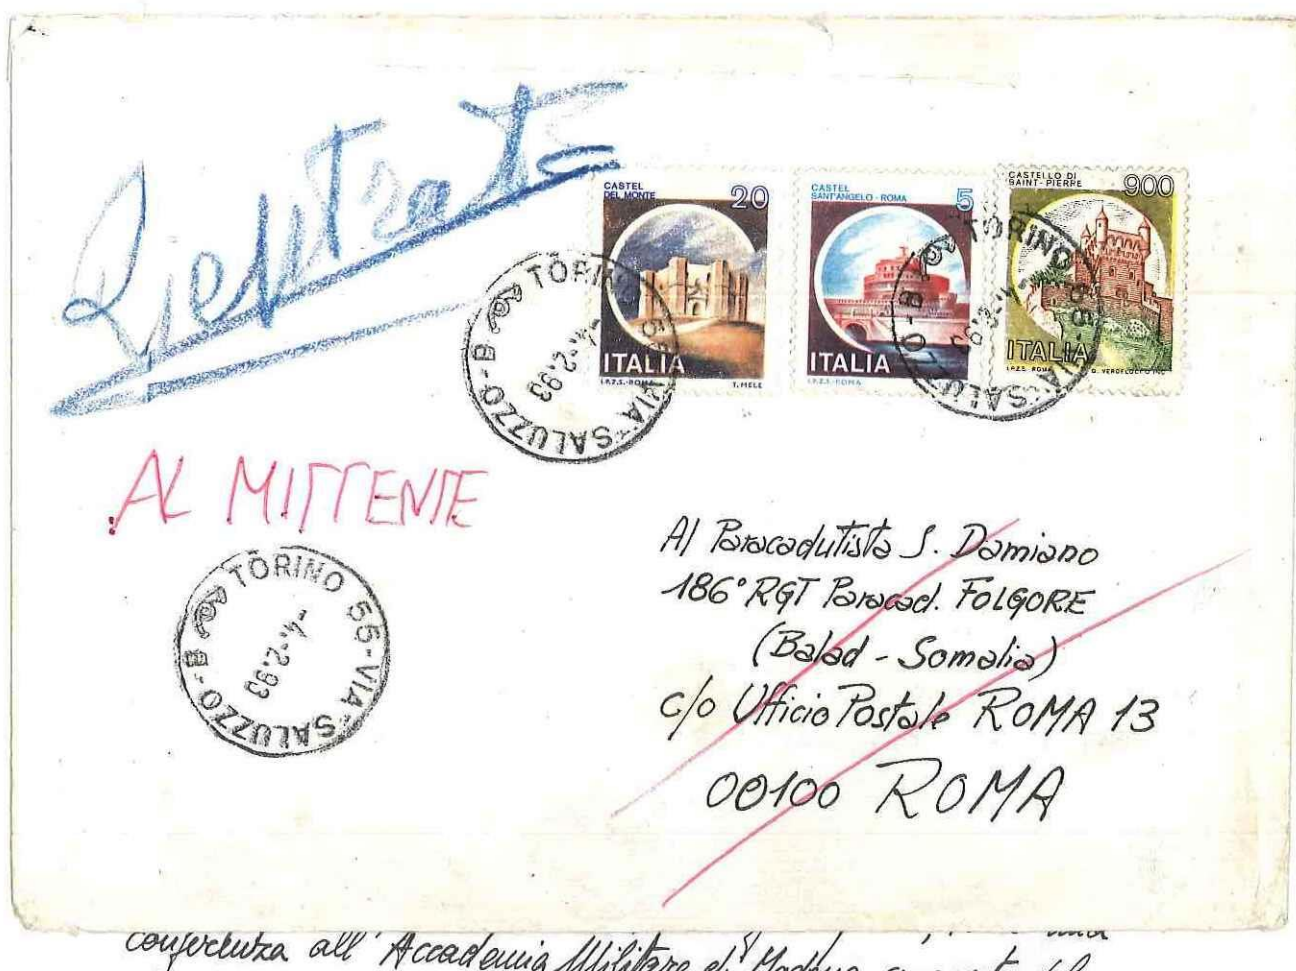 Rientrato
CASTEL
DEL MONTE 20
ITALIA
I.P.Z.S. - ROMA T. MELE
CASTEL
SANT'ANGELO - ROMA 5
ITALIA
I.P.Z.S. - ROMA
CASTELLO DI
SAINT-PIERRE 900
ITALIA
I.P.Z.S. ROMA
TORINO 55 - VIA SALUZZO - B
-4.2.93
TORINO 55 - VIA SALUZZO - B
-4.2.93
AL MITTENTE
TORINO 55 - VIA SALUZZO - B
-4.2.93
Al Paracadutista S. Damiano
186° RGT Paracad. FOLGORE
(Balad - Somalia)
c/o Ufficio Postale ROMA 13
00100 ROMA
conferenza all'Accademia Militare di Modena